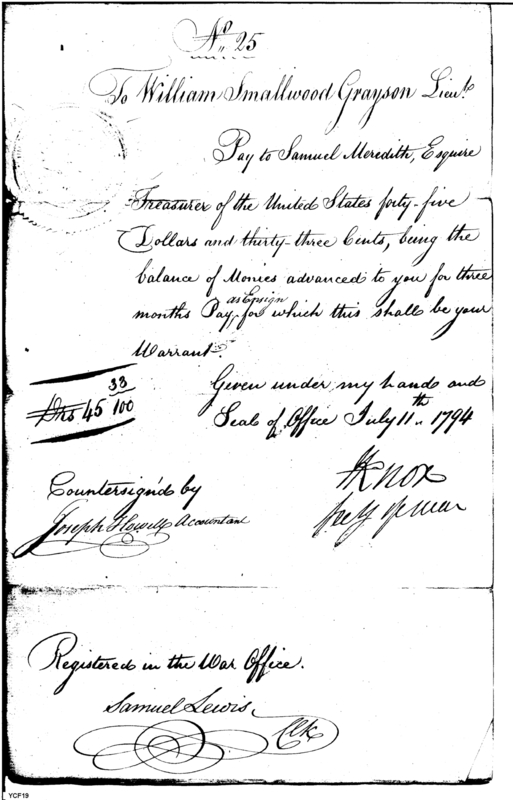 No 25
To William Smallwood Grayson Lieut.
Pay to Samuel Meredith, Esquire
Treasurer of the United States forty-five
Dollars and thirty-three Cents, being the
balance of Monies advanced to you for three
months Pay, as Ensign for which this shall be your
Warrant.
Given under my hand and
Drs 45 33/100
Seal of Office July 11th 1794
HKnox
Secy of war
Countersign'd by
Joseph Howell Accountant
Registered in the War Office.
Samuel Lewis, Clk
YCF19